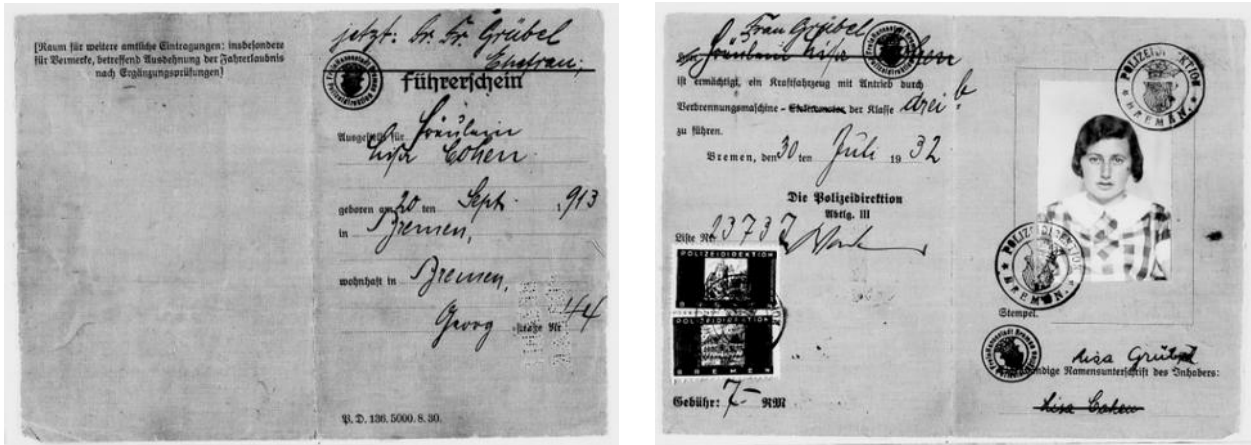 [Raum für weitere amtliche Eintragungen: insbesondere
für Vermerke, betreffend Ausdehnung der Fahrerlaubnis
nach Ergänzungsprüfungen]
jetzt: Dr. Fr. Grübel
Ehefrau,
Führerschein
Ausgestellt für Fräulein
Lisa Cohen
geboren am 20 ten Sept. 1913
in Bremen,
wohnhaft in Bremen,
Georg -straße Nr 44
P. D. 136. 5000. 8. 30.
Frau Grübel
Fräulein Lisa Cohen
ist ermächtigt, ein Kraftfahrzeug mit Antrieb durch
Verbrennungsmaschine - Elektromotor, der Klasse drei b
zu führen.
Bremen, den 30 ten Juli 1932
Die Polizeidirektion
Abtlg. III
Liste Nr. 23737
POLIZEIDIREKTION
BREMEN
POLIZEIDIREKTION
BREMEN
Gebühr: 7- RM
POLIZEIDIREKTION
BREMEN
POLIZEIDIREKTION
BREMEN
Stempel.
Lisa Grübel
Eigenhändige Namensunterschrift des Inhabers:
Lisa Cohen